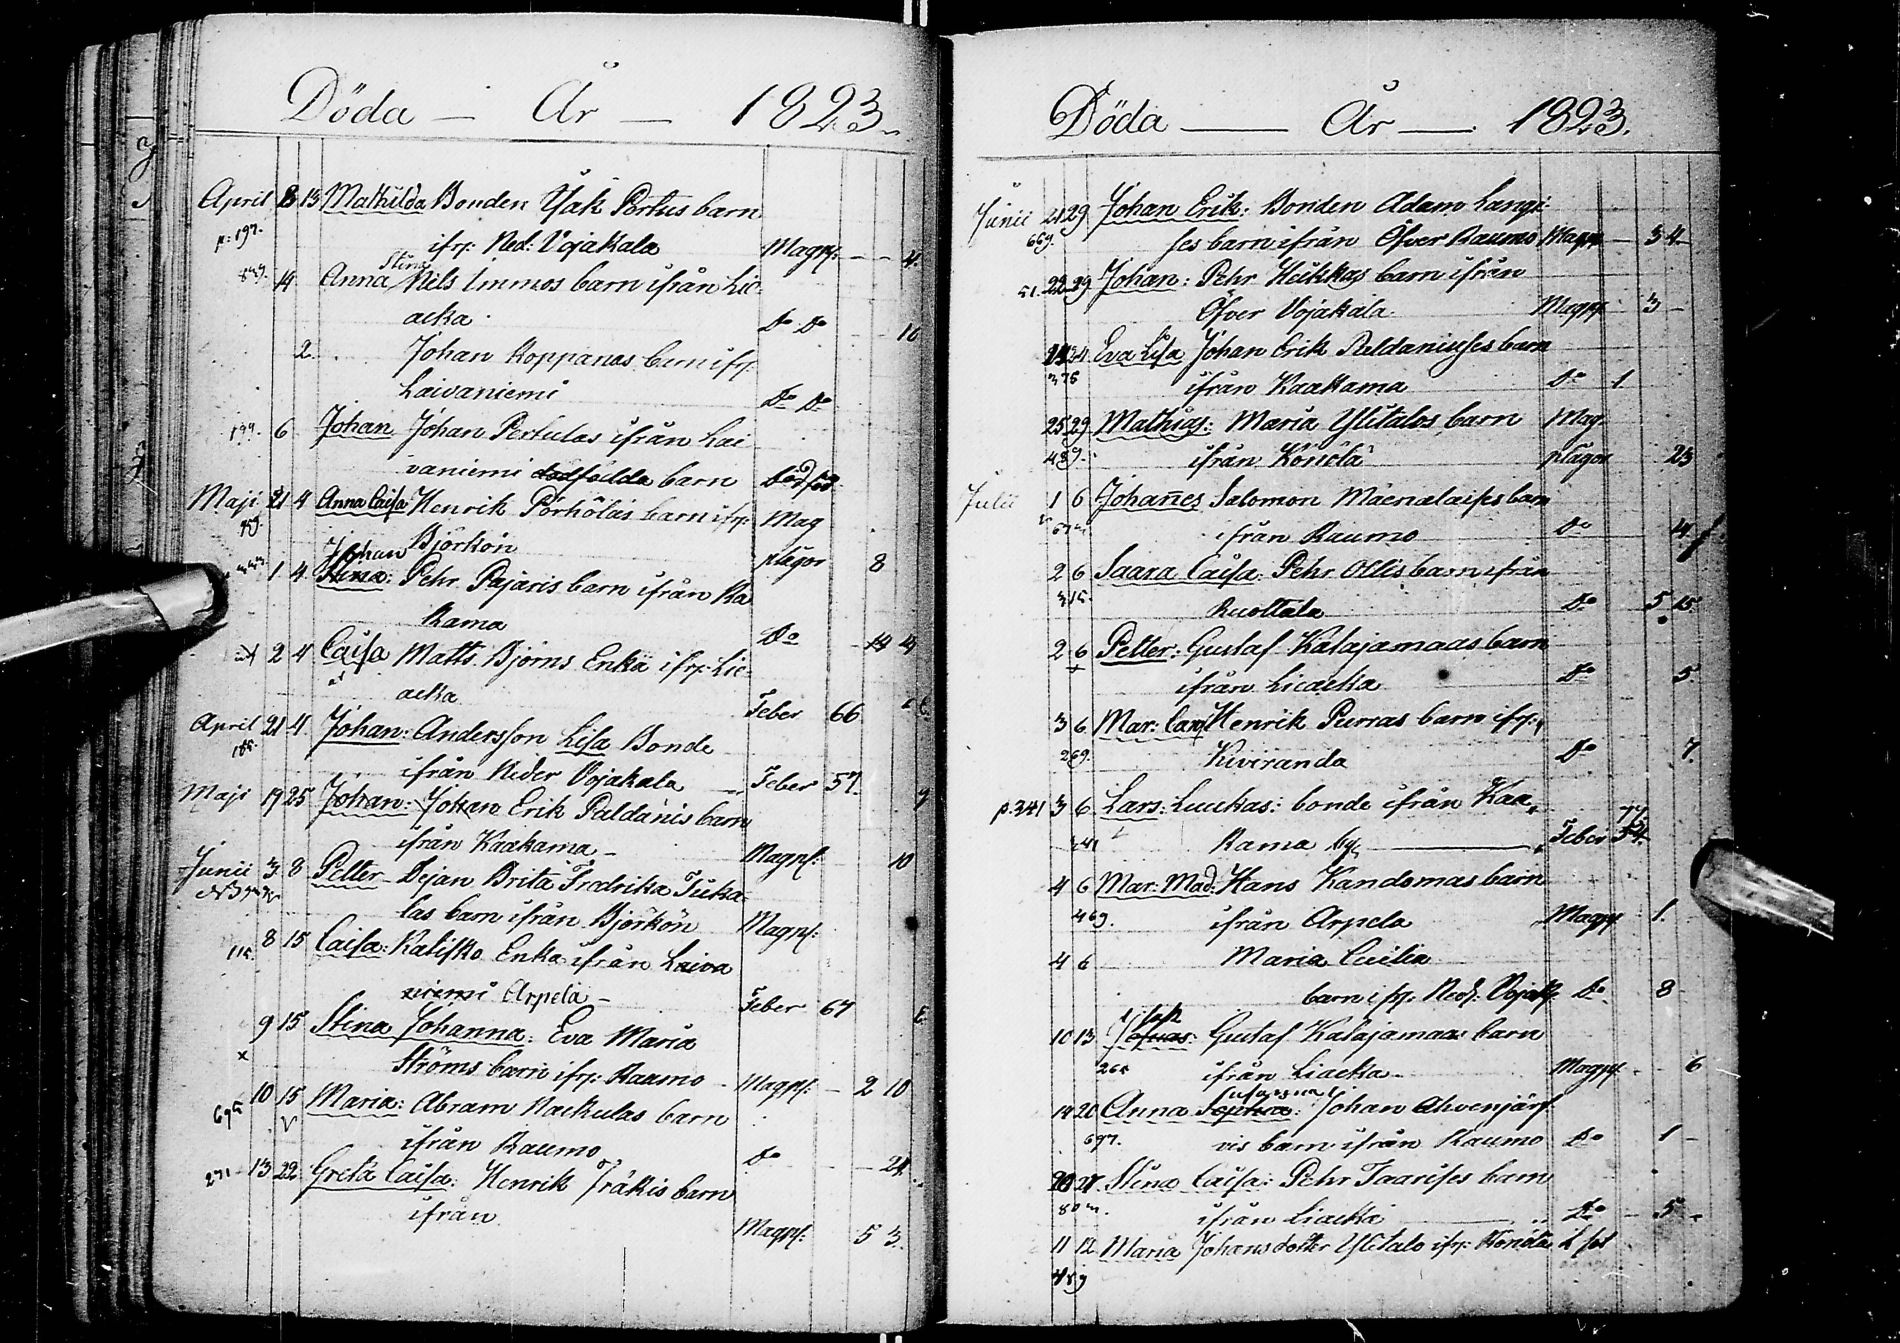 Döda — År — 1823.
April 8 13 Mathilda Bonden Isak Portus barn
p: 197. ifr: Ned: Vojakala Magpl: — — 4.
Stina
14 Anna Nils Immos barn ifrån Lie-
acka. Do Do 10
2. Johan Koppanas barn ifr:
Laivaniemi Do Do
199. 6 Johan Johan Pertulas ifrån Lai
vaniemi dödfödda barn Död föd.
Maji 21 4 Anna Caisa Henrik Pörhölas barn ifr: Mag
Björkön plågor 8
Johan
1 4 Stina: Pehr Pajaris barn ifrån Ka
kama Do 14 4
2 4 Caisa Matts Björns Enka ifr: Lie-
acka Feber 66 E.
April 21 4 Johan: Andersson Lisa Bonde
185. ifrån Neder Vojakala Feber 57. g
Maji 19 25 Johan: Johan Erik Paldanis barn
ifrån Kaakama — Magpl: 10
Junii 3. 8 Petter Pejan Brita Fredrika Tuka-
las barn ifrån Björkön Magpl:
115. 8 15 Caisa: Katisko Enka ifrån Laiva
niemi Arpela — Feber 67 E.
9 15 Stina Johanna: Eva Maria
x Ströms barn ifr: Raumo Magpl: — 2 10
10 15 Maria: Abram Nackulas barn
695 v ifrån Raumo Do 24
271 13 22 Greta Caisa: Henrik Träkis barn
ifrån Magpl: 5 3.
Döda — År — 1823.
Junii 21 29 Johan Erik: Bonden Adam Langi-
669. ses barn ifrån Öfver Raumo Magpl — 3 4
51. 22 29 Johan: Pehr Heikkas barn ifrån
Öfver Vojakala. Magpl 3 —
24 Eva Lisa Johan Erik Peldaniuses barn
375 ifrån Kaakama Do 1
25 29 Mathias: Maria Ylitalos barn Mag.
489. ifrån Könölä plågor 23
Julii 1 6 Johañes Salomon Mäenalaises barn
ifrån Raumo Do 4
2 6 Saara Caisa: Pehr Ollis barn ifrån
315. Ruottala Do 5 15.
2 6 Petter: Gustaf Kalajamaas barn
+ ifrån Lieacka Do 5.
3 6 Mar: Caisa Henrik Purras barn ifr:
269. Kiviranda Do 7.
p. 241 3 6 Lars: Luukas: bonde ifrån Kaa-
77.
241 kama by, — Feber 54.
4 6 Mar: Mad: Hans Kandomas barn
469. ifrån Arpela Magpl 1.
4 6 Maria Cecilia
barn ifr. Ned: Vojak. Do 8
10 13 Josuas: Gustaf Kalajamaas barn
265 ifrån Liacka Magpl. 6
Susanna
14 20 Anna Sophia: Johan Ahvenjärf-
697. vis barn ifrån Raumo Do 1 —
20 27 Stina Caisa: Pehr Taarises barn
ifrån Liacki — Do — 5 —
11 12 Maria Johans doter Ylitalo ifr: Könölä
489